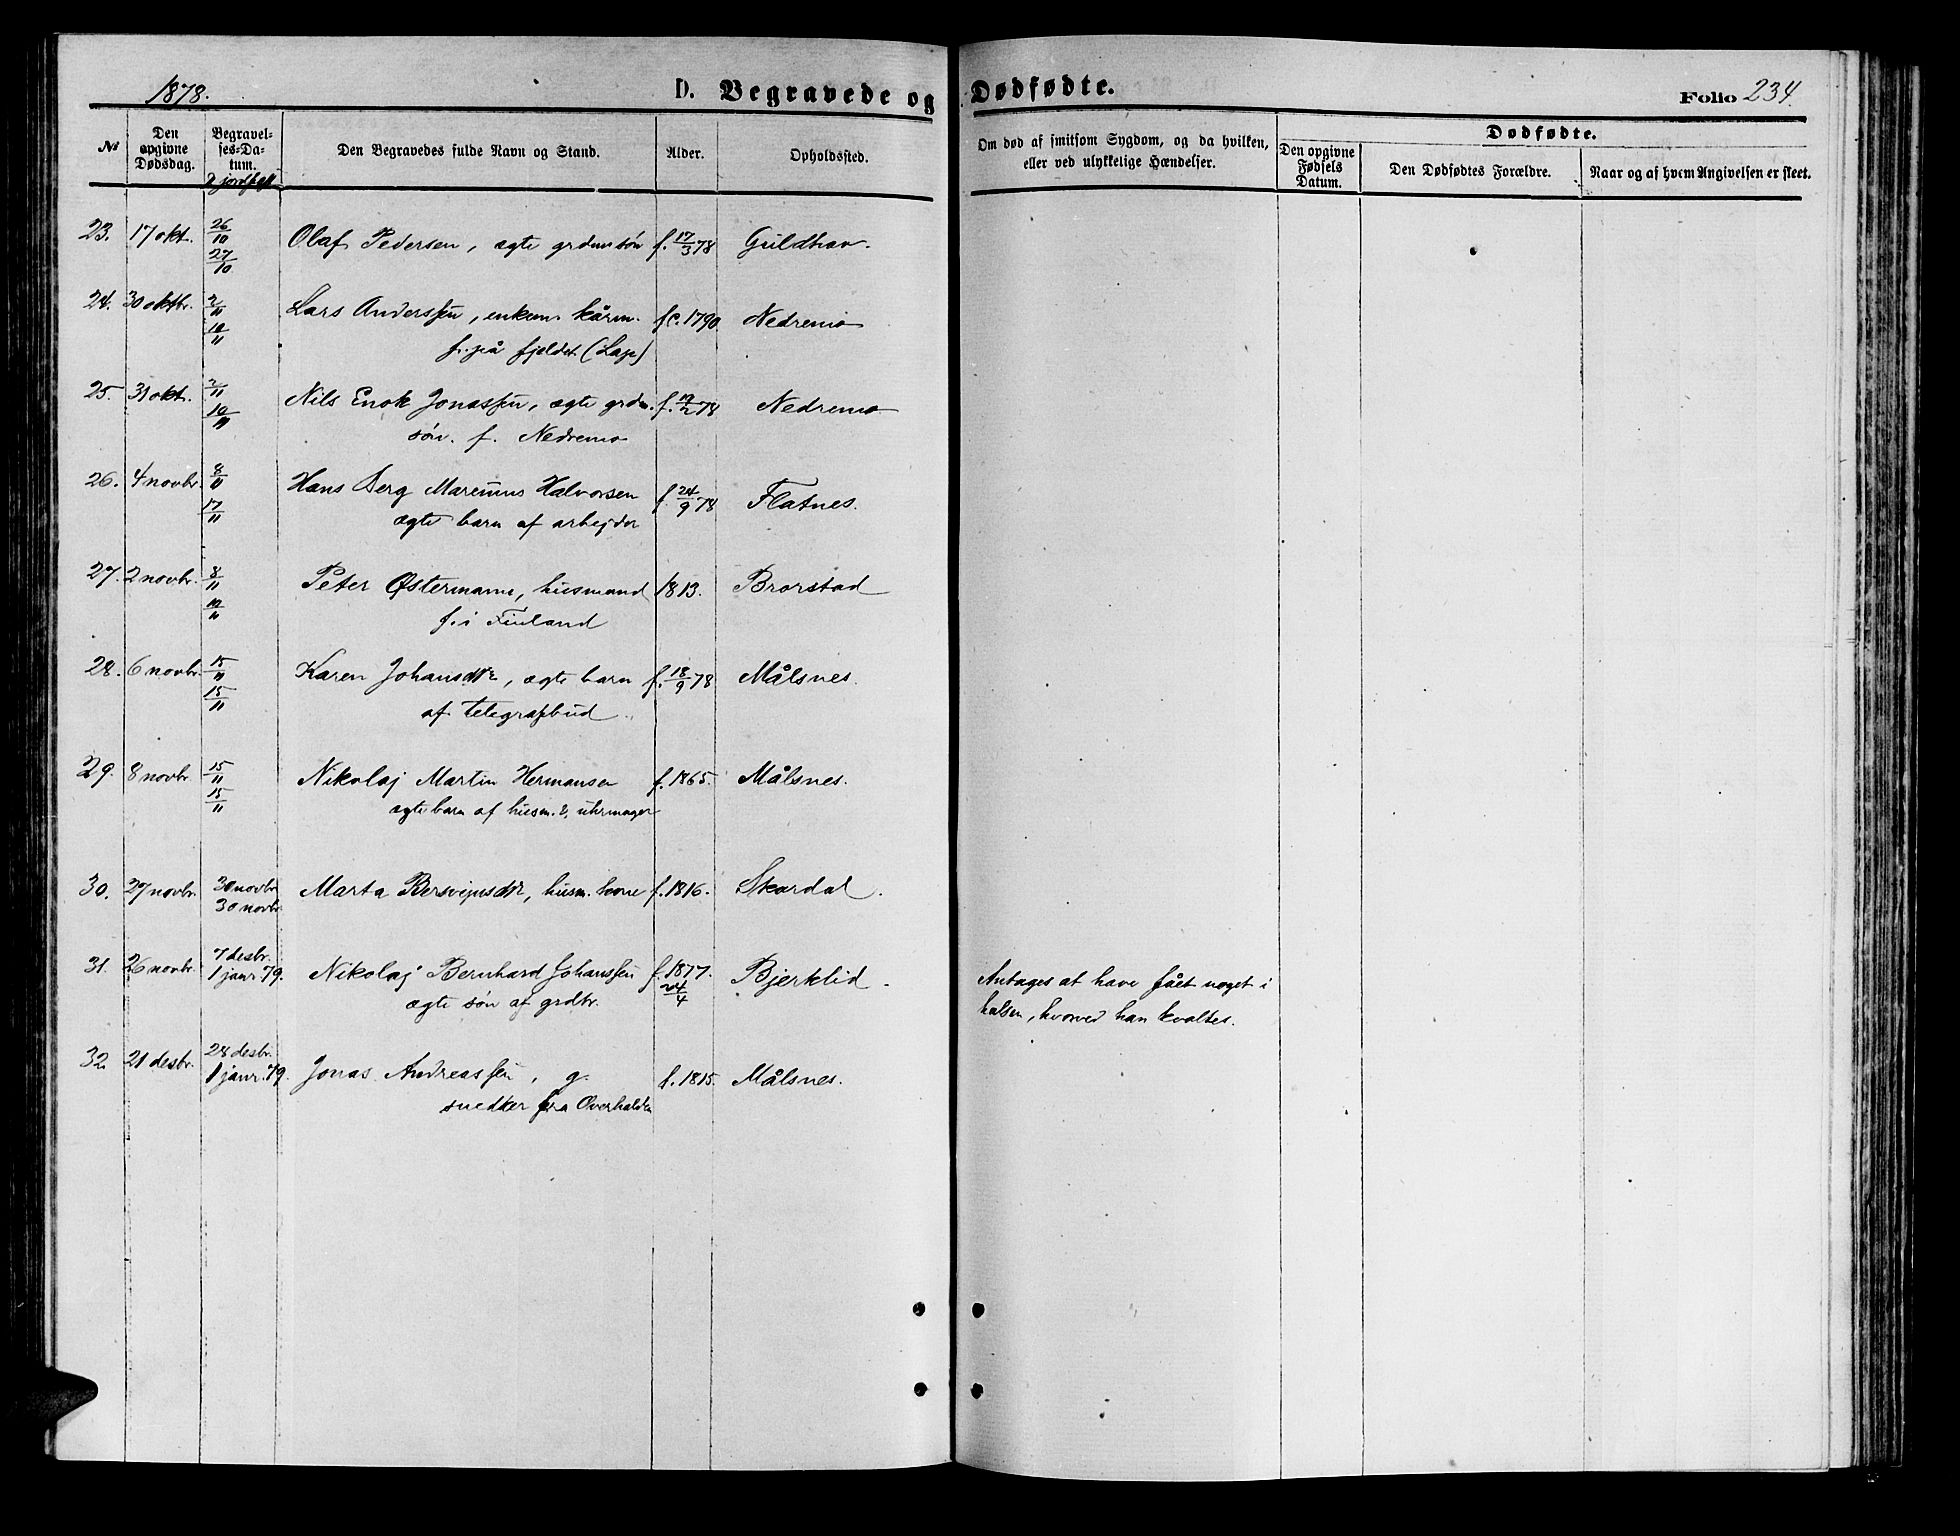 1878.
D. Begravede og Dødfødte.
Folio 234.
No
Den opgivne Dødsdag.
Begravelses-Datum.
& jordfæst
Den Begravedes fulde Navn og Stand.
Alder.
Opholdssted.
Om død af smitsom Sygdom, og da hvilken, eller ved ulykkelige Hændelser.
Dødfødte.
Den opgivne Fødsels Datum.
Den Dødfødtes Forældre.
Naar og af hvem Angivelsen er skeet.
23. 17 okt. 26/10 27/10 Olaf Pedersen, ægte grdmsøn f. 17/3 78 Guldhav.
24. 30 oktbr. 2/11 10/11 Lars Anderssen, enkem. kårm. f. c. 1790 Nedremo
f. på fjeldet (Lap)
25. 31 okt. 2/11 10/11 Nils Enok Jonassen, ægte grdm. f. 19/2 78 Nedremo
søn. f. Nedremo
26. 4 novbr. 8/11 17/11 Hans Berg Marenius Halvorsen f. 24/9 78 Flatnes.
ægte barn af arbejder
27. 2 novbr. 8/11 10/11 Peter Østermann, husmand 1813. Brorstad
f. i Finland
28. 6 novbr. 15/11 15/11 Karen Johansdtr, ægte barn f. 18/9 78 Målsnes.
af telegrafbud
29. 8 novbr. 15/11 15/11 Nikolaj Martin Hermansen f. 1865. Målsnes.
ægte barn af husm. & uhrmager
30. 27 novbr. 30 novbr. 30 novbr. Marta Bersvejnsdtr, husm. kone f. 1816. Skardal.
31. 26 novbr. 7 desbr. 1 janr 79. Nikolaj Bernhard Johanssen f. 1877. 24/4 Bjerklid. Antages at have fået noget i
ægte søn af grdbr. halsen, hvorved han kvaltes.
32. 21 desbr. 28 desbr. 1 janr. 79. Jonas Andreassen, g. f. 1815. Målsnes.
snedker fra Overhalden